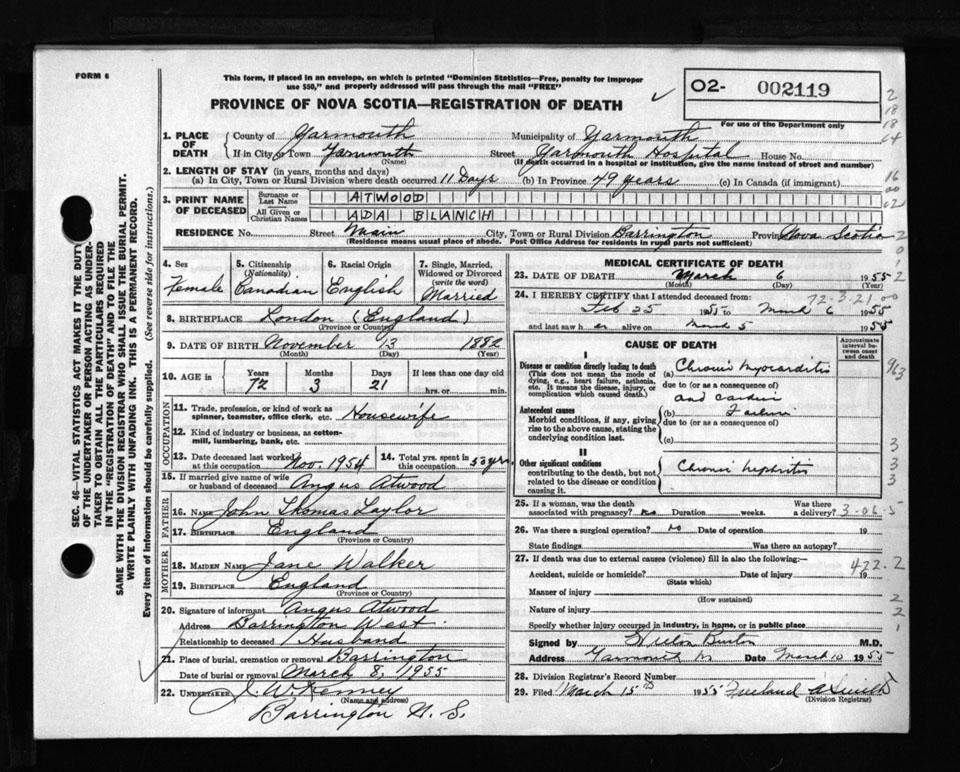 FORM 6
This form, if placed in an envelope, on which is printed "Dominion Statistics—Free, penalty for improper
use $50," and properly addressed will pass through the mail "FREE"
PROVINCE OF NOVA SCOTIA—REGISTRATION OF DEATH
O2- 002119
For use of the Department only
1. PLACE OF DEATH
County of Yarmouth Municipality of Yarmouth
If in City or Town Yarmouth Street Yarmouth Hospital House No.
(Name) (If death occurred in a hospital or institution, give the name instead of street and number)
2. LENGTH OF STAY (in years, months and days)
(a) In City, Town or Rural Division where death occurred 11 Days (b) In Province 49 years (c) In Canada (if immigrant)
3. PRINT NAME OF DECEASED
Surname or Last Name ATWOOD
All Given or Christian Names ADA BLANCH
RESIDENCE No. Street Main City, Town or Rural Division Barrington Province Nova Scotia
(Residence means usual place of abode. Post Office Address for residents in rural parts not sufficient)
4. Sex Female
5. Citizenship (Nationality) Canadian
6. Racial Origin English
7. Single, Married, Widowed or Divorced (write the word) Married
8. BIRTHPLACE London (England)
(Province or Country)
9. DATE OF BIRTH November 13 1882
(Month) (Day) (Year)
10. AGE in Years 72 Months 3 Days 21 If less than one day old hrs. or min.
OCCUPATION
11. Trade, profession, or kind of work as spinner, teamster, office clerk, etc. Housewife
12. Kind of industry or business, as cotton-mill, lumbering, bank, etc.
13. Date deceased last worked at this occupation Nov. 1954 14. Total yrs. spent in this occupation 50 yrs.
15. If married give name of wife or husband of deceased Angus Atwood
FATHER
16. Name John Thomas Taylor
17. Birthplace England
(Province or Country)
MOTHER
18. Maiden Name Jane Walker
19. Birthplace England
(Province or Country)
20. Signature of informant Angus Atwood
Address Barrington West
Relationship to deceased Husband
21. Place of burial, cremation or removal Barrington
Date of burial or removal March 8, 1955
22. Undertaker J. W. Kenney
(Name and address)
Barrington N. S.
MEDICAL CERTIFICATE OF DEATH
23. DATE OF DEATH March 6 1955
(Month) (Day) (Year)
72-3-21
24. I HEREBY CERTIFY that I attended deceased from:
Feb 25 1955 to March 6 1955
and last saw her alive on March 5 1955
CAUSE OF DEATH
Approximate interval between onset and death
I
Disease or condition directly leading to death
(This does not mean the mode of dying, e.g., heart failure, asthenia, etc. It means the disease, injury, or complication which caused death.)
(a) Chronic Myocarditis
due to (or as a consequence of)
and cardiac
Antecedent causes
Morbid conditions, if any, giving rise to the above cause, stating the underlying condition last.
(b) Failure
due to (or as a consequence of)
(c)
II
Other significant conditions
contributing to the death, but not related to the disease or condition causing it.
Chronic Nephritis
25. If a woman, was the death associated with pregnancy? no Duration weeks. Was there a delivery?
3-06-5
26. Was there a surgical operation? no Date of operation 19
State findings Was there an autopsy?
27. If death was due to external causes (violence) fill in also the following:—
422-2
Accident, suicide or homicide? Date of injury 19
(State which)
Manner of injury
(How sustained)
Nature of injury
Specify whether injury occurred in industry, in home, or in public place
Signed by Burton M.D.
Address Yarmouth Date March 10 1955
28. Division Registrar's Record Number
29. Filed March 15th 1955 Freeland A Smith
(Division Registrar)
SEC. 46—VITAL STATISTICS ACT MAKES IT THE DUTY
OF THE UNDERTAKER OR PERSON ACTING AS UNDER-
TAKER TO OBTAIN ALL THE PARTICULARS REQUIRED
IN THE "REGISTRATION OF DEATH" AND TO FILE THE
SAME WITH THE DIVISION REGISTRAR WHO SHALL ISSUE THE BURIAL PERMIT.
WRITE PLAINLY WITH UNFADING INK. THIS IS A PERMANENT RECORD.
Every item of information should be carefully supplied. (See reverse side for instructions.)